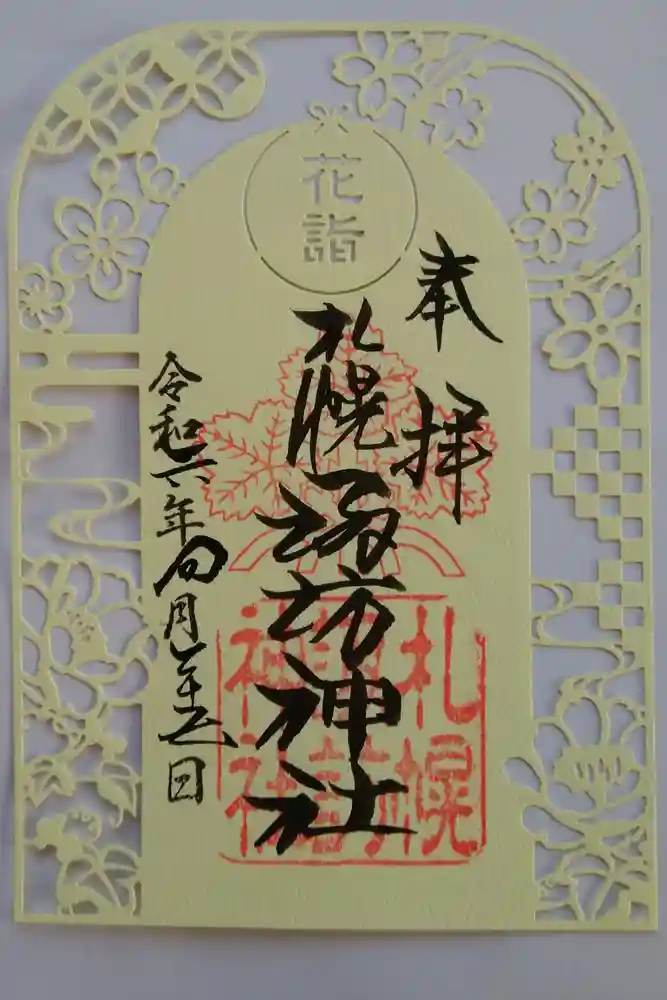 花詣
奉拝
札幌諏訪神社
令和六年四月日
札幌
諏訪
神社